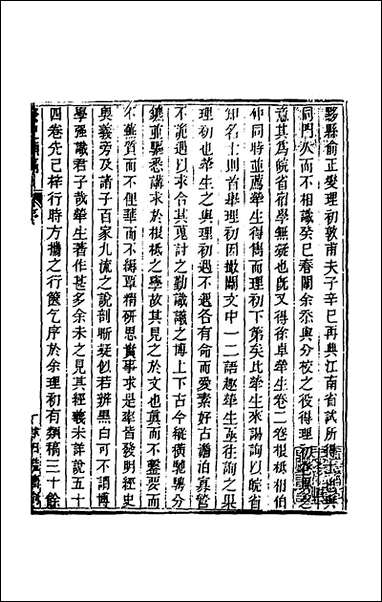 黟縣俞正燮理初敦甫夫子辛巳再典江南省試所得士也與
同門久而不相識癸巳春闈余忝與分校之役得理初卷異之
意其為皖省宿學無疑也既又得徐卓犖生卷二卷根柢相伯
仲同時並薦犖生得雋而理初下第矣比犖生來謁詢以皖省
知名士則首舉理初因擷闈文中一二語趣犖生亟往詢之果
理初也犖生之與理初遇不遇各有命而愛素好古澹泊真管
不詭遇以求合其蒐討之勤識議之博上下古今縱橫馳騁分
鑣並驅悉講求於根柢之學故其見之於文也真而不鑿要而
不蕪質而不俚華而不縟覃精研思實事求是率皆發明經史
奧義旁及諸子百家九流之說剖晰疑似若辨黑白可不謂博
學強識君子哉犖生著作甚多余未之見其經義未詳說五十
四卷先已梓行時方攜之行篋乞序於余理初有類稿三十餘